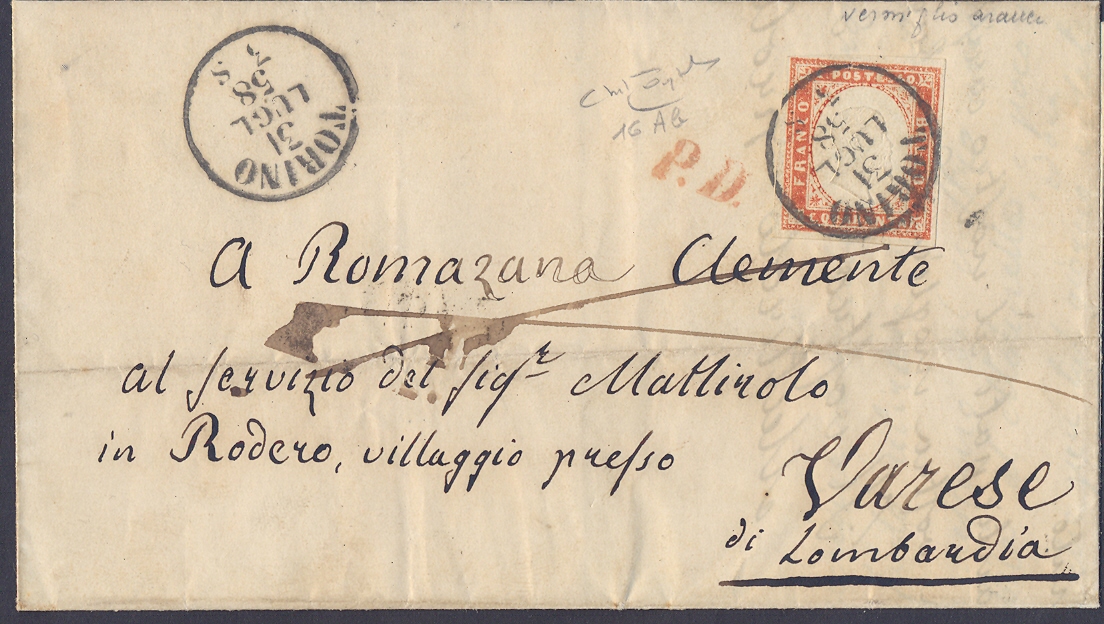 vermiglio
16 Ab
TORINO
31
LUGL
58
S
FRANCO
TORINO
31
LUGL
58
P.D.
A Romazana Clemente
al servizio del sigr Mattirolo
in Rodero, villaggio presso
Varese
di Lombardia